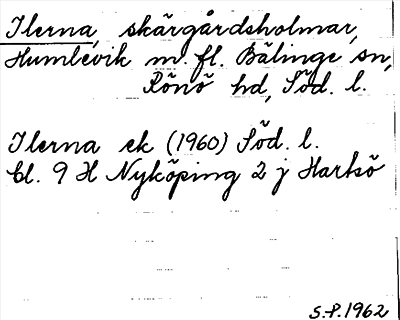 Ilerna, skärgårdsholmar,
Humlevik m. fl. Bälinge sn,
Rönö hd, Söd. l.
Ilerna ek (1960) Söd. l.
bl. 9 H Nyköping 2 j Hartsö
S.P. 1962